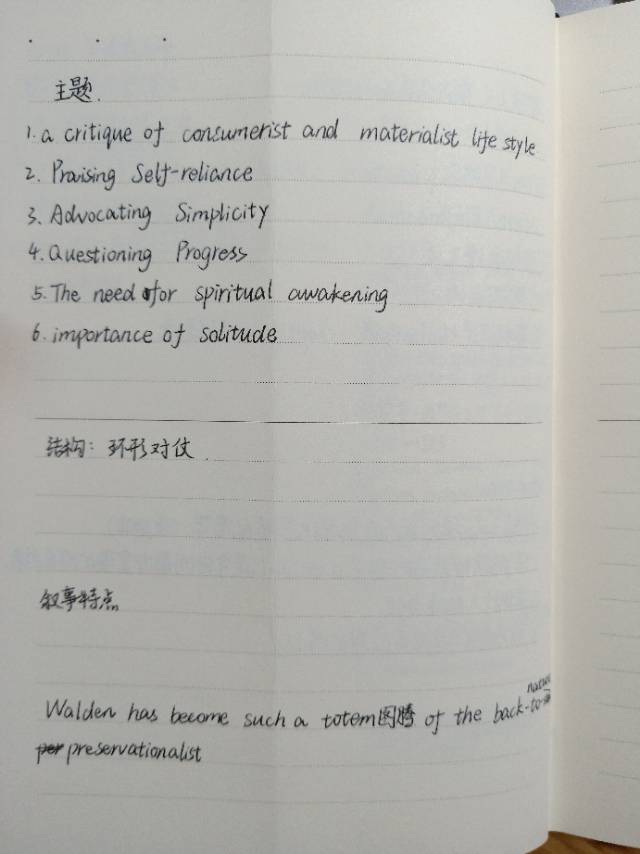 主题.
1. a critique of consumerist and materialist life style
2. Praising Self-reliance
3. Advocating Simplicity
4. Questioning Progress
5. The need for spiritual awakening
6. importance of solitude
结构: 环形对仗.
叙事特点
Walden has become such a totem图腾 of the back-to-nature
preservationalist